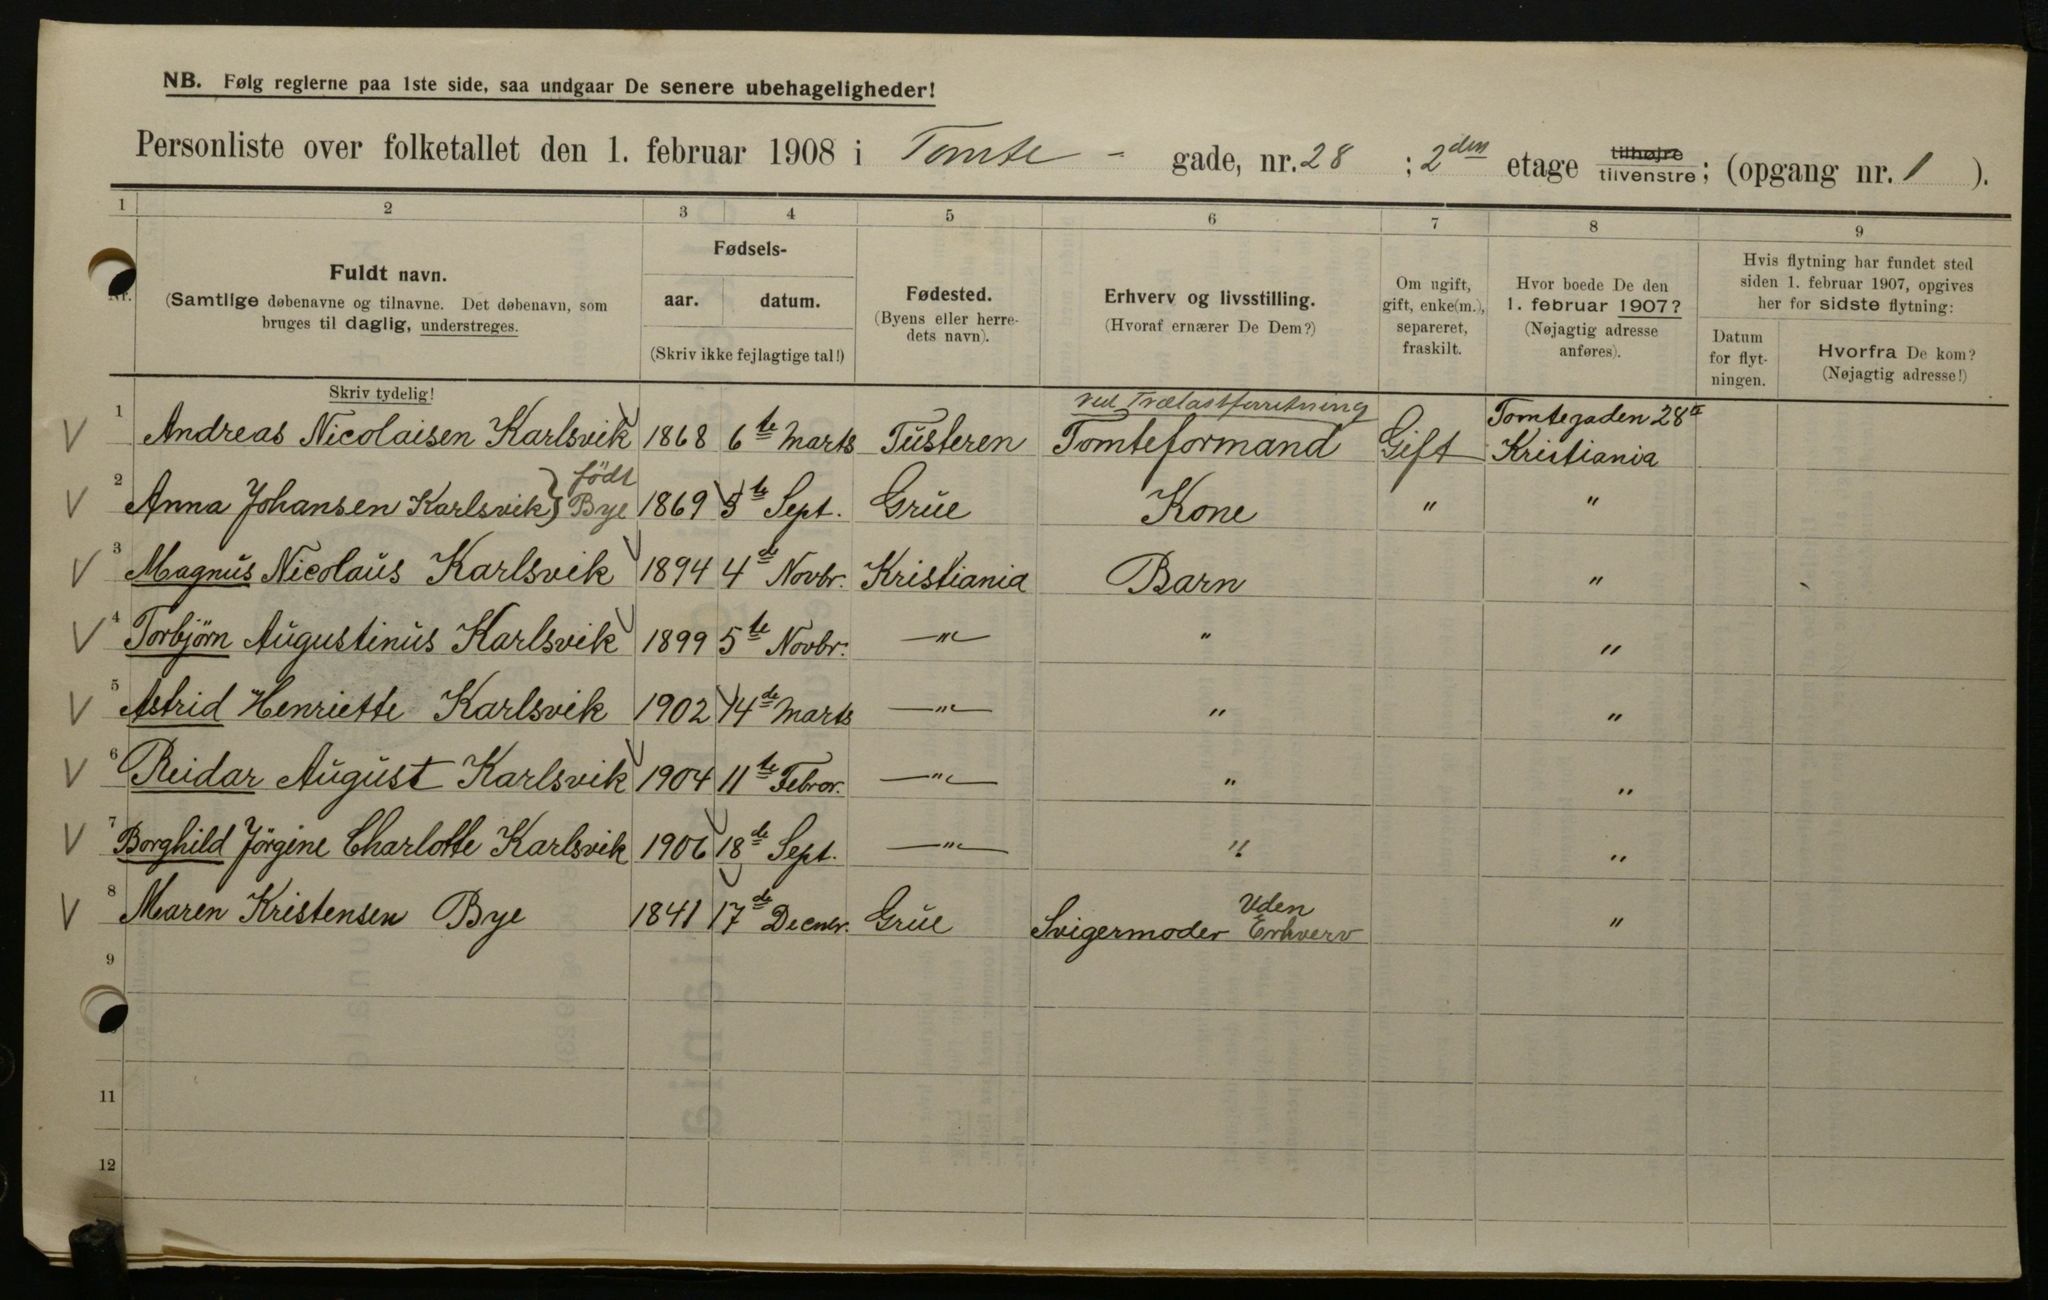 NB. Følg reglerne paa 1ste side, saa undgaar De senere ubehageligheder!
Personliste over folketallet den 1. februar 1908 i Tomte - gade, nr. 28 ; 2den etage tilhøjre tilvenstre; (opgang nr. 1 ).
1 2 3 4 5 6 7 8 9
Nr.
Fuldt navn.
(Samtlige døbenavne og tilnavne. Det døbenavn, som
bruges til daglig, understreges.
Fødsels-
aar. datum.
(Skriv ikke fejlagtige tal!)
Fødested.
(Byens eller herre-
dets navn).
Erhverv og livsstilling.
(Hvoraf ernærer De Dem?)
Om ugift,
gift, enke(m.),
separeret,
fraskilt.
Hvor boede De den
1. februar 1907?
(Nøjagtig adresse
anføres).
Hvis flytning har fundet sted
siden 1. februar 1907, opgives
her for sidste flytning:
Datum
for flyt-
ningen.
Hvorfra De kom?
(Nøjagtig adresse!)
Skriv tydelig!
ved Trælastforretning Tomtegaden 28a
1 Andreas Nicolaisen Karlsvik 1868 6te Marts Tusteren Tomteformand Gift Kristiania
født
2 Anna Johansen Karlsvik } Bye 1869 5te Sept. Grue Kone " "
3 Magnus Nicolaus Karlsvik 1894 4de Novbr. Kristiania Barn "
4 Torbjørn Augustinus Karlsvik 1899 5te Novbr. —"— " "
5 Astrid Henriette Karlsvik 1902 14de Marts —"— " "
6 Reidar August Karlsvik 1904 11te Febror. —"— " "
7 Borghild Jörgine Charlotte Karlsvik 1906 18de Sept. —"— " "
Uden
8 Maren Kristensen Bye 1841 17de Decmbr. Grue Svigermoder Erhverv "
9
11
12